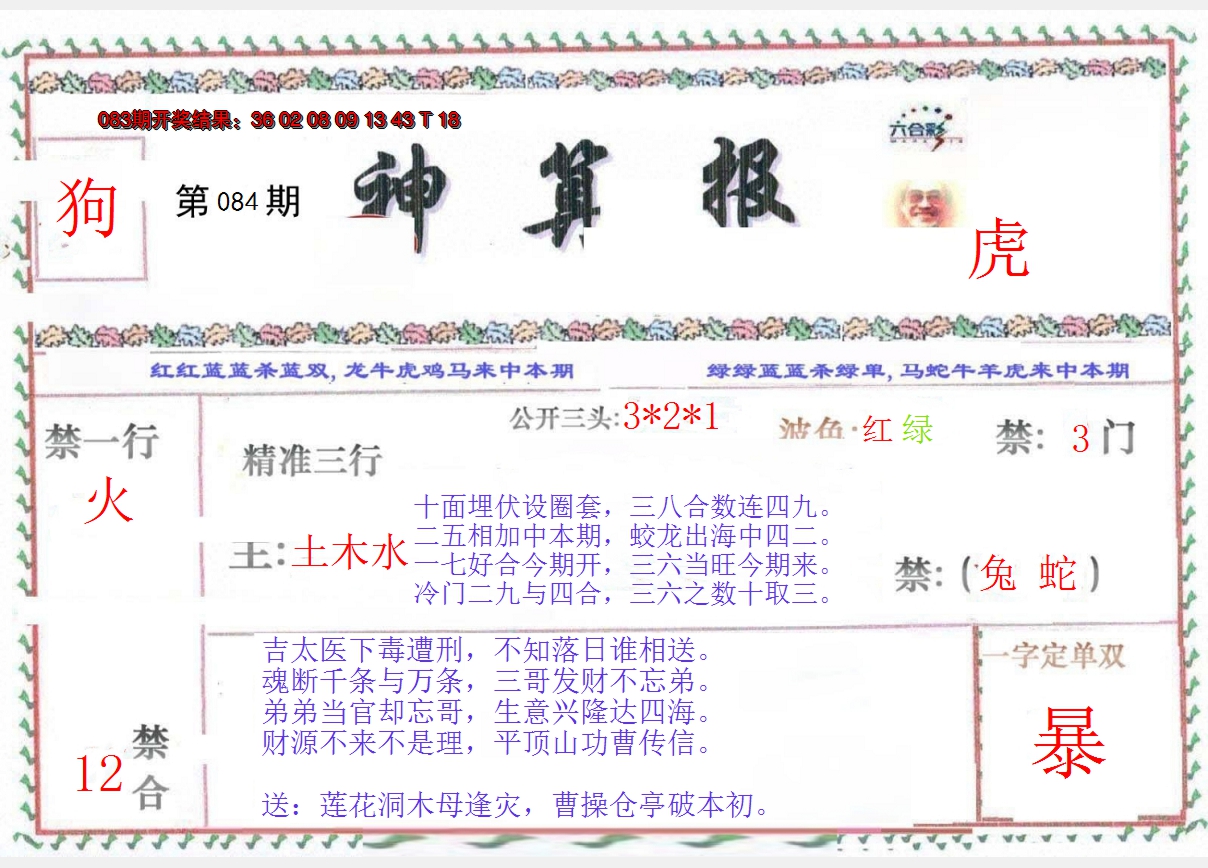 083期开奖结果：36 02 08 09 13 43 T 18
六合彩
狗
第 084 期
神算报
虎
红红蓝蓝杀蓝双, 龙牛虎鸡马来中本期
绿绿蓝蓝杀绿单, 马蛇牛羊虎来中本期
禁一行
火
精准三行
主: 土木水
公开三头: 3*2*1
波色: 红 绿
禁: 3 门
十面埋伏设圈套，三八合数连四九。
二五相加中本期，蛟龙出海中四二。
一七好合今期开，三六当旺今期来。
冷门二九与四合，三六之数十取三。
禁: (兔 蛇)
吉太医下毒遭刑，不知落日谁相送。
魂断千条与万条，三哥发财不忘弟。
弟弟当官却忘哥，生意兴隆达四海。
财源不来不是理，平顶山功曹传信。
送：莲花洞木母逢灾，曹操仓亭破本初。
12
禁合
一字定单双
暴